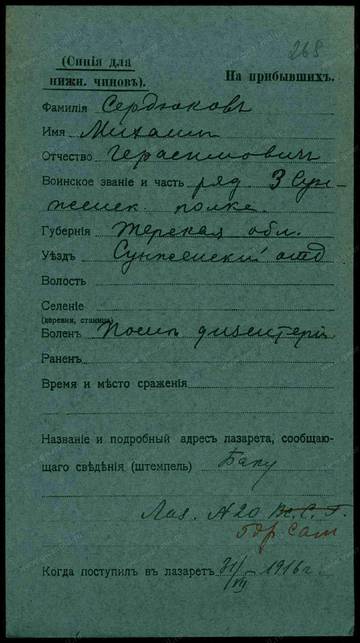 268
(Синія для
нижн. чиновъ).
На прибывшихъ.
Фамилія Сердюковъ
Имя Михаилъ
Отчество Герасимовичъ
Воинское званіе и часть ряд. 3 Сун-
женск. полка.
Губернія Терская обл.
Уѣздъ Сунженскій отд
Волость
Селеніе
(деревня, станица)
Боленъ Послѣ дизентеріи
Раненъ
Время и мѣсто сраженія
Названіе и подробный адресъ лазарета, сообщаю-
щаго свѣдѣнія (штемпель) Баку
Лаз. № 20 В. С. Г.
Когда поступилъ въ лазаретъ 31/VII 1916 г.